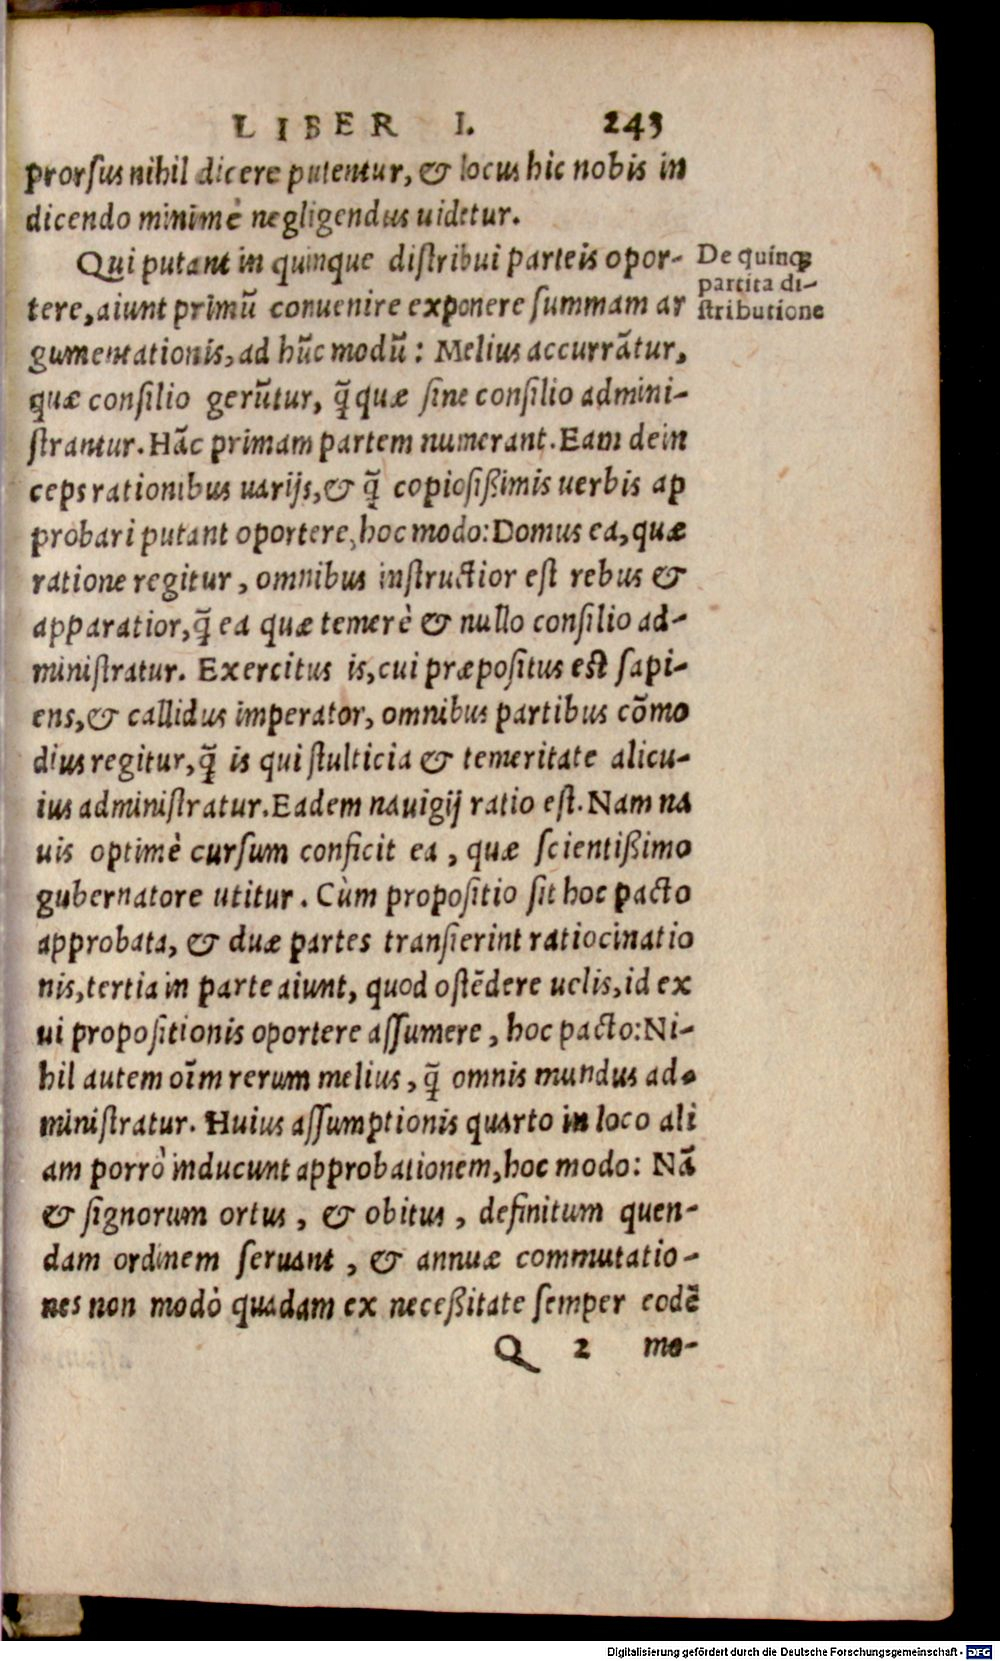 LIBER I. 243
prorſus nihil dicere putentur, & locus hic nobis in
dicendo minimè negligendus uidetur.
Qui putant in quinque diſtribui parteis opor-
tere, aiunt primū conuenire exponere ſummam ar
gumentationis, ad hūc modū: Melius accurrātur,
quæ conſilio gerūtur, q̃ quæ ſine conſilio admini-
ſtrantur. Hāc primam partem numerant. Eam dein
ceps rationibus uarijs, & q̃ copioſißimis uerbis ap
probari putant oportere, hoc modo: Domus ea, quæ
ratione regitur, omnibus inſtructior eſt rebus &
apparatior, q̃ ea quæ temerè & nullo conſilio ad-
miniſtratur. Exercitus is, cui præpoſitus eſt ſapi-
ens, & callidus imperator, omnibus partibus cōmo
dius regitur, q̃ is qui ſtulticia & temeritate alicu-
ius adminiſtratur. Eadem nauigij ratio eſt. Nam na
uis optimè curſum conficit ea, quæ ſcientißimo
gubernatore utitur. Cùm propoſitio ſit hoc pacto
approbata, & duæ partes tranſierint ratiocinatio
nis, tertia in parte aiunt, quod oſtēdere uelis, id ex
ui propoſitionis oportere aſſumere, hoc pacto: Ni-
hil autem oīm rerum melius, q̃ omnis mundus ad-
miniſtratur. Huius aſſumptionis quarto in loco ali
am porrò inducunt approbationem, hoc modo: Nā
& ſignorum ortus, & obitus, definitum quen-
dam ordinem ſeruant, & annuæ commutatio-
nes non modò quadam ex neceßitate ſemper eodē
Q 2 mo-
De quinqȝ
partita di-
ſtributione
Digitalisierung gefördert durch die Deutsche Forschungsgemeinschaft - DFG